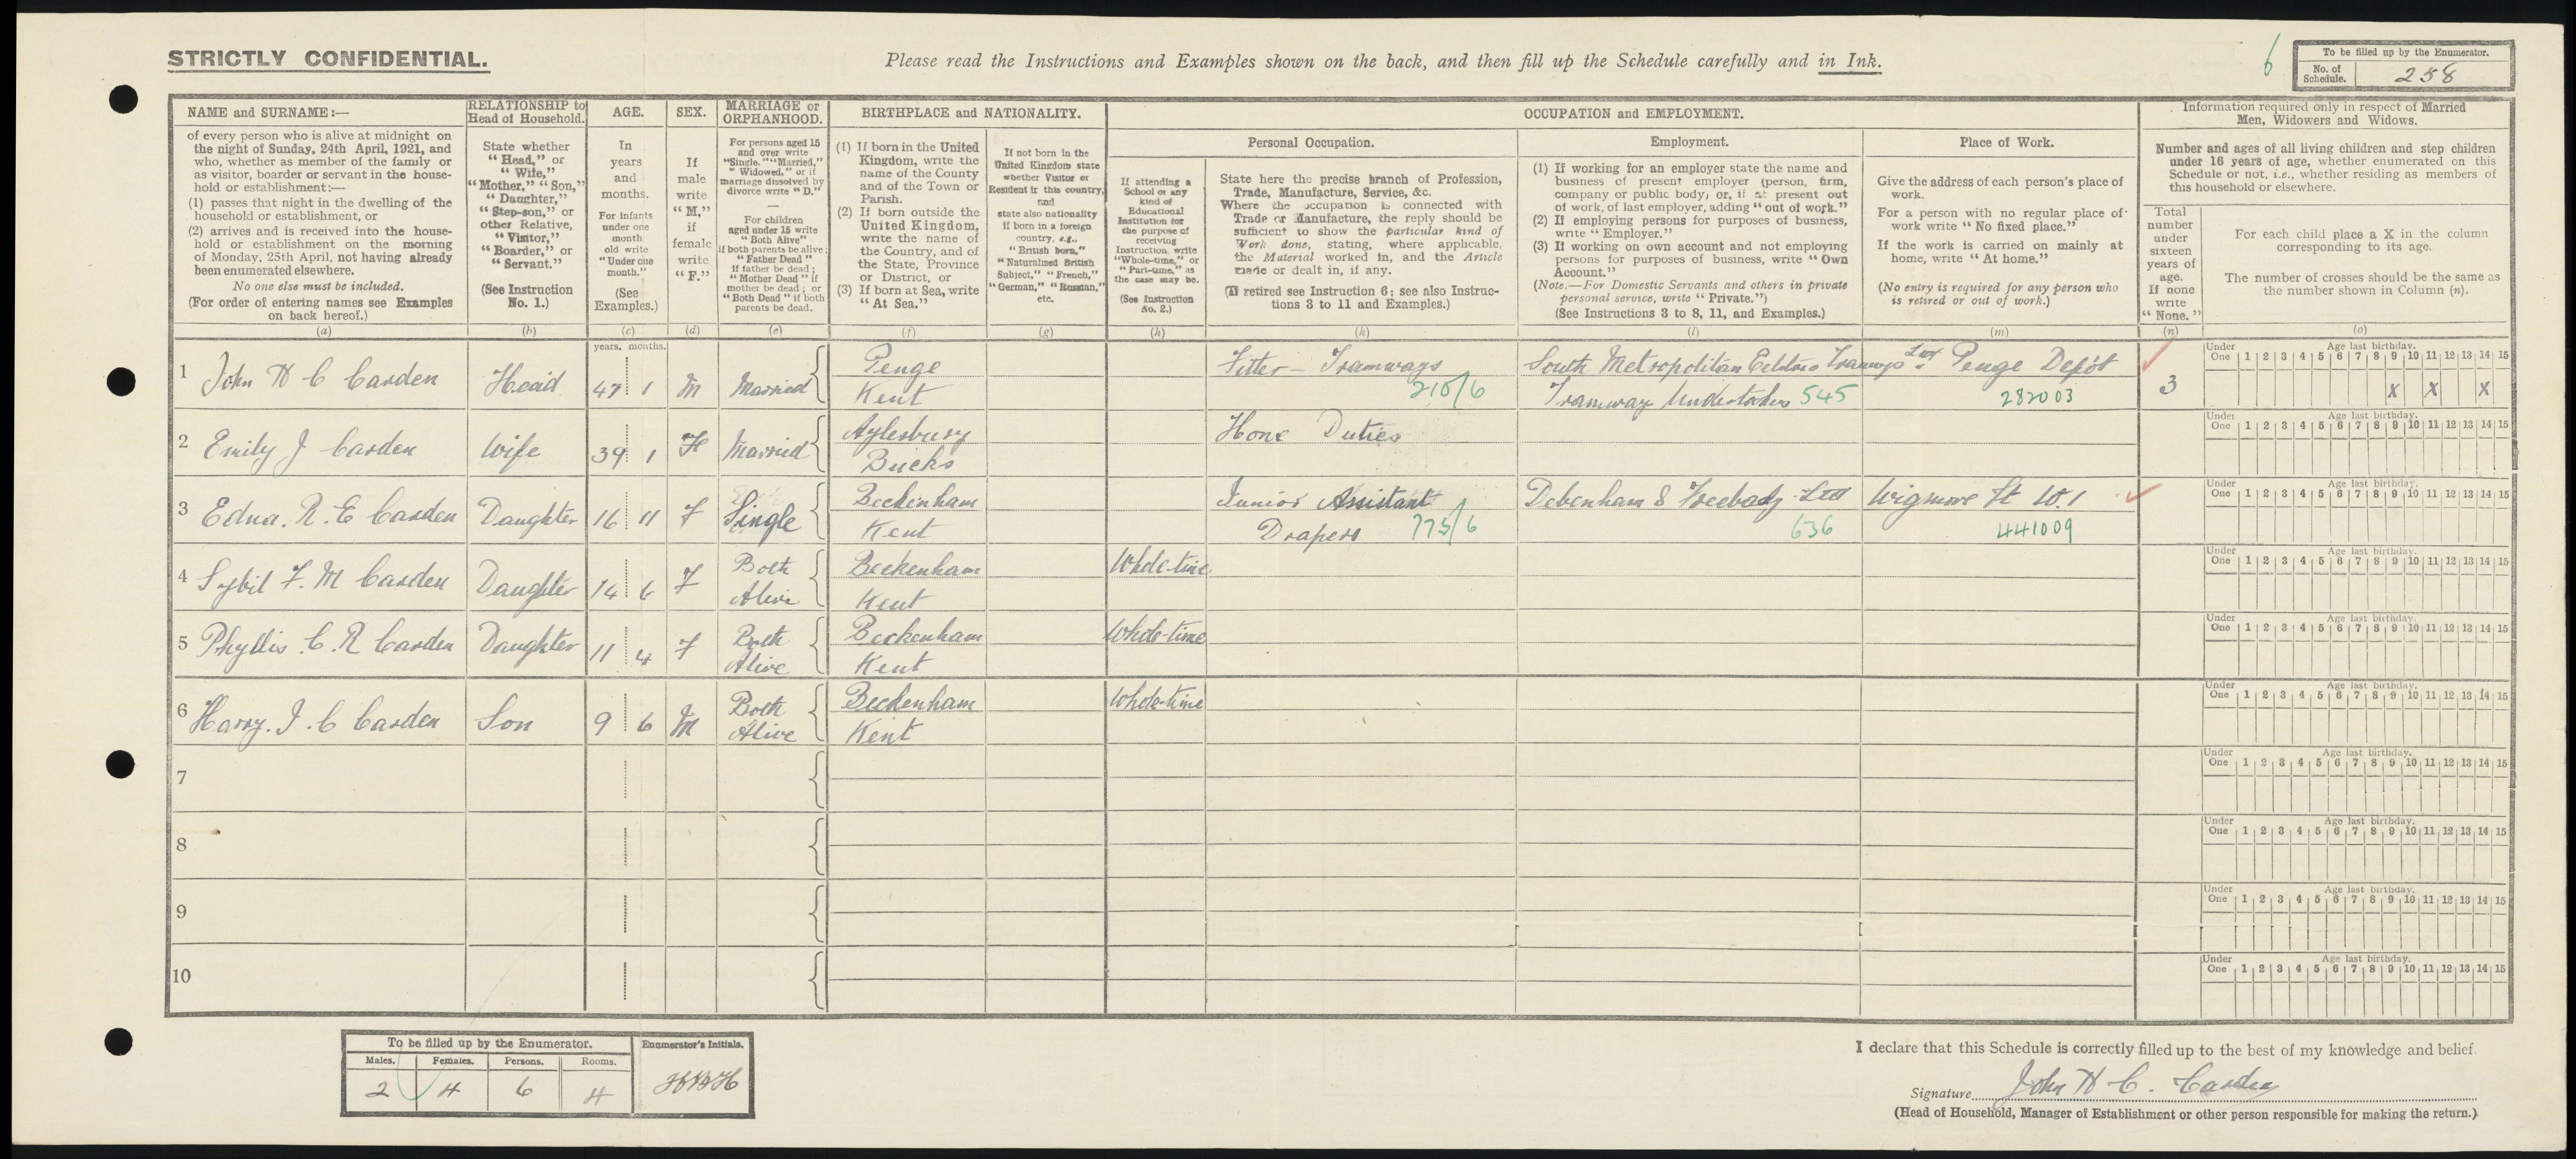 STRICTLY CONFIDENTIAL.
Please read the Instructions and Examples shown on the back, and then fill up the Schedule carefully and in Ink.
6
To be filled up by the Enumerator.
No. of Schedule. 258
NAME and SURNAME:—
of every person who is alive at midnight on
the night of Sunday, 24th April, 1921, and
who, whether as member of the family or
as visitor, boarder or servant in the house-
hold or establishment:—
(1) passes that night in the dwelling of the
household or establishment, or
(2) arrives and is received into the house-
hold or establishment on the morning
of Monday, 25th April, not having already
been enumerated elsewhere.
No one else must be included.
(For order of entering names see Examples
on back hereof.)
(a)
RELATIONSHIP to
Head of Household.
State whether
"Head," or
"Wife,"
"Mother," "Son,"
"Daughter,"
"Step-son," or
other Relative,
"Visitor,"
"Boarder," or
"Servant."
(See Instruction
No. 1.)
(b)
AGE.
In
years
and
months.
For infants
under one
month
old write
"Under one
month."
(See
Examples.)
(c)
SEX.
If
male
write
"M,"
if
female
write
"F."
(d)
MARRIAGE or
ORPHANHOOD.
For persons aged 15
and over write
"Single," "Married,"
"Widowed," or if
marriage dissolved by
divorce write "D."
—
For children
aged under 15 write
"Both Alive"
if both parents be alive;
"Father Dead"
if father be dead;
"Mother Dead" if
mother be dead; or
"Both Dead" if both
parents be dead.
(e)
BIRTHPLACE and NATIONALITY.
(1) If born in the United
Kingdom, write the
name of the County
and of the Town or
Parish.
(2) If born outside the
United Kingdom,
write the name of
the Country, and of
the State, Province
or District, or
(3) If born at Sea, write
"At Sea."
(f)
If not born in the
United Kingdom state
whether Visitor or
Resident in this country,
and
state also nationality
if born in a foreign
country, e.g.,
"British born,"
"Naturalised British
Subject," "French,"
"German," "Russian,"
etc.
(g)
OCCUPATION and EMPLOYMENT.
If attending a
School or any
kind of
Educational
Institution for
the purpose of
receiving
Instruction, write
"Whole-time," or
"Part-time," as
the case may be.
(See Instruction
No. 2.)
(h)
Personal Occupation.
State here the precise branch of Profession,
Trade, Manufacture, Service, &c.
Where the occupation is connected with
Trade or Manufacture, the reply should be
sufficient to show the particular kind of
Work done, stating, where applicable,
the Material worked in, and the Article
made or dealt in, if any.
(If retired see Instruction 6; see also Instruc-
tions 3 to 11 and Examples.)
(k)
Employment.
(1) If working for an employer state the name and
business of present employer (person, firm,
company or public body) or, if at present out
of work, of last employer, adding "out of work."
(2) If employing persons for purposes of business,
write "Employer."
(3) If working on own account and not employing
persons for purposes of business, write "Own
Account."
(Note.—For Domestic Servants and others in private
personal service, write "Private.")
(See Instructions 3 to 8, 11, and Examples.)
(l)
Place of Work.
Give the address of each person's place of
work.
For a person with no regular place of
work write "No fixed place."
If the work is carried on mainly at
home, write "At home."
(No entry is required for any person who
is retired or out of work.)
(m)
Information required only in respect of Married
Men, Widowers and Widows.
Number and ages of all living children and step children
under 16 years of age, whether enumerated on this
Schedule or not, i.e., whether residing as members of
this household or elsewhere.
Total
number
under
sixteen
years of
age.
If none
write
"None."
(n)
For each child place a X in the column
corresponding to its age.
The number of crosses should be the same as
the number shown in Column (n).
(o)
years. months.
Under One Age last birthday. 1 2 3 4 5 6 7 8 9 10 11 12 13 14 15
1 John H C Carden Head 47 1 M Married Penge Kent Fitter – Tramways 210/6 South Metropolitan Eletric Tramways Ltd Tramway Undertakers 545 Penge Depôt 282003 3 X X X
Under One Age last birthday. 1 2 3 4 5 6 7 8 9 10 11 12 13 14 15
2 Emily J Carden Wife 39 1 F Married Aylesbury Bucks Home Duties
Under One Age last birthday. 1 2 3 4 5 6 7 8 9 10 11 12 13 14 15
3 Edna. R. E Carden Daughter 16 11 F Single Beckenham Kent Junior Assistant Drapers 775/6 Debenham & Freebody Ltd 636 Wigmore St W.1 441009
Under One Age last birthday. 1 2 3 4 5 6 7 8 9 10 11 12 13 14 15
4 Sybil F. M Carden Daughter 14 6 F Both Alive Beckenham Kent Whole-time
Under One Age last birthday. 1 2 3 4 5 6 7 8 9 10 11 12 13 14 15
5 Phyllis. C. R Carden Daughter 11 4 F Both Alive Beckenham Kent Whole-time
Under One Age last birthday. 1 2 3 4 5 6 7 8 9 10 11 12 13 14 15
6 Harry. J. C Carden Son 9 6 M Both Alive Beckenham Kent Whole-time
Under One Age last birthday. 1 2 3 4 5 6 7 8 9 10 11 12 13 14 15
7
Under One Age last birthday. 1 2 3 4 5 6 7 8 9 10 11 12 13 14 15
8
Under One Age last birthday. 1 2 3 4 5 6 7 8 9 10 11 12 13 14 15
9
Under One Age last birthday. 1 2 3 4 5 6 7 8 9 10 11 12 13 14 15
10
To be filled up by the Enumerator. Enumerator's Initials.
Males. Females. Persons. Rooms.
2 4 6 4
I declare that this Schedule is correctly filled up to the best of my knowledge and belief
Signature John H C. Carden
(Head of Household, Manager of Establishment or other person responsible for making the return.)